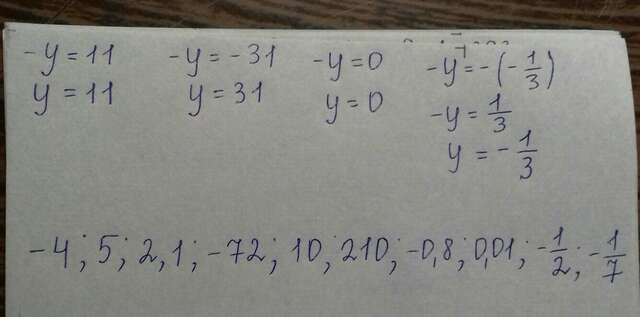 -y = 11   -y = -31   -y = 0   -y = -(-1/3)
y = 11   y = 31   y = 0   -y = 1/3
y = -1/3
-4; 5; 2,1; -72; 10; 210; -0,8; 0,01; -1/2; -1/7